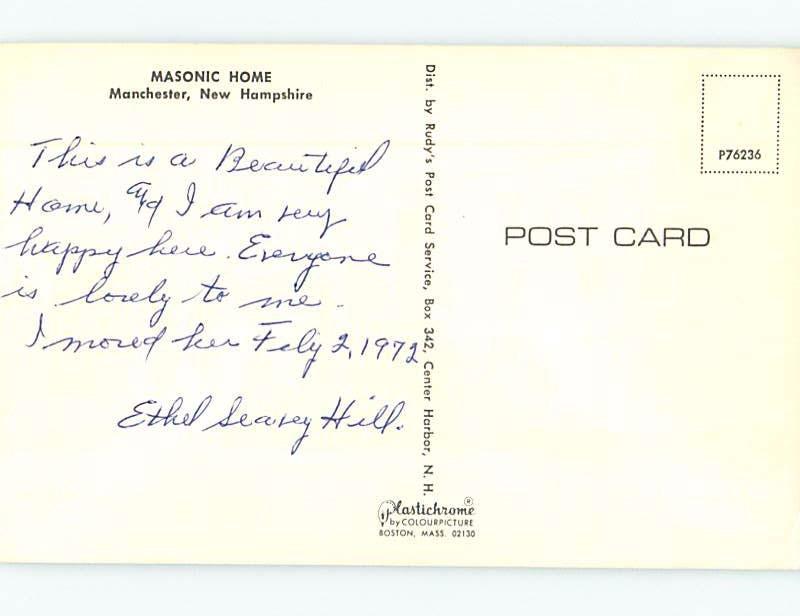 MASONIC HOME
Manchester, New Hampshire
This is a Beautiful
Home, and I am very
happy here. Everyone
is lovely to me.
I moved here Feby 2, 1972
Ethel Seavey Hill.
Dist. by Rudy's Post Card Service, Box 342, Center Harbor, N. H.
Plastichrome®
by COLOURPICTURE
BOSTON, MASS. 02130
P76236
POST CARD